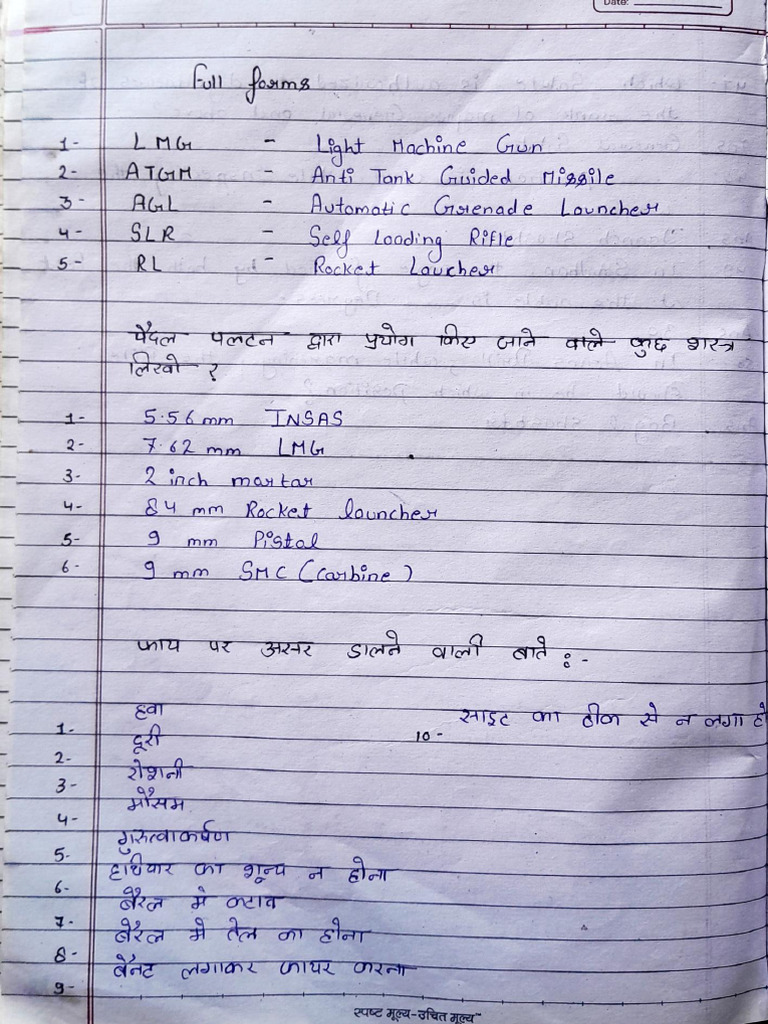 Date:
Full forms
1- LMG - Light Machine Gun
2- ATGM - Anti Tank Guided Missile
3- AGL - Automatic Grenade Launcher
4- SLR - Self Loading Rifle
5- RL - Rocket Laucher
पैदल पलटन द्वारा प्रयोग किए जाने वाले कुछ शस्त्र
लिखो ?
1- 5.56 mm INSAS
2- 7.62 mm LMG
3- 2 inch mortar
4- 84 mm Rocket louncher
5- 9 mm Pistal
6- 9 mm SMC (Carbine)
फाय पर असर डालने वाली बाते :-
1- हवा
2- दूरी
3- रोशनी
4- मौसम
5- गुरुत्वाकर्षण
6- हाथियार का शून्य न होना
7- बैरल मे कटाव
8- बेरैल मे तेल का होना
9- बैनट लगाकर फायर करना
10- साइट का ठीक से न लगा हो
स्पष्ट मूल्य-उचित मूल्य™